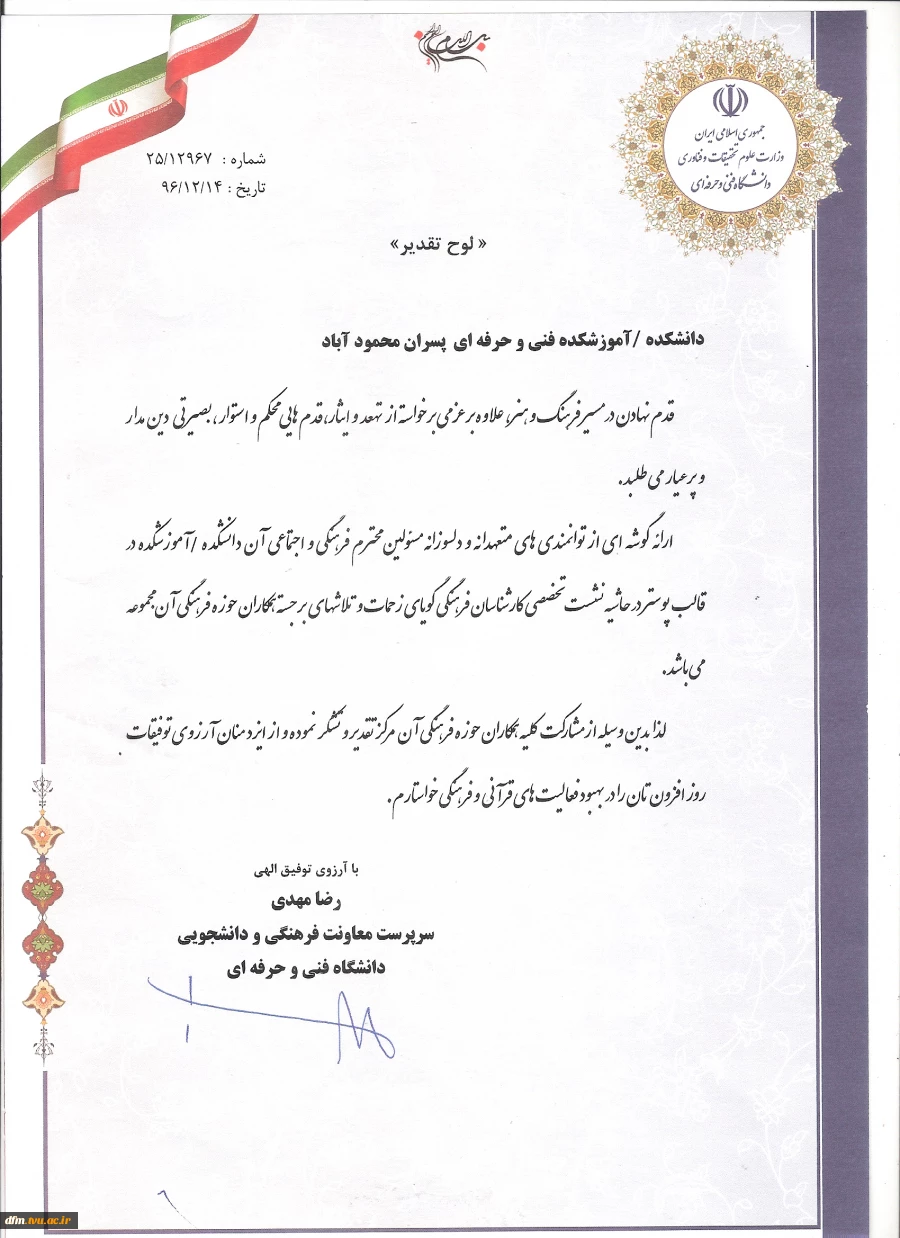 بسم الله الرحمن الرحیم
جمهوری اسلامی ایران
وزارت علوم تحقیقات و فناوری
دانشگاه فنی و حرفه‌ای
شماره : ۲۵/۱۲۹۶۷
تاریخ : ۹۶/۱۲/۱۴
« لوح تقدیر»
دانشکده /آموزشکده فنی و حرفه ای پسران محمود آباد
قدم نهادن در مسیر فرهنگ و هنر، علاوه بر عزمی برخواسته از تهعد و ایثار،قدم هایی محکم و استوار ، بصیرتی دین مدار
و پر عیار می طلبد.
ارائه گوشه ای از توانمندی های متعهدانه و دلسوزانه مسئولین محترم فرهنگی و اجتماعی آن دانشکده /آموزشکده در
قالب پوستر در حاشیه نشست تخصصی کارشناسان فرهنگی گویای زحمات و تلاشهای برجسته همکاران حوزه فرهنگی آن مجموعه
می باشد.
لذا بدین وسیله از مشارکت کلیه همکاران حوزه فرهنگی آن مرکز تقدیر و تشکر نموده و از ایزد منان آرزوی توفیقات
روز افزون تان را در بهبود فعالیت های قرآنی و فرهنگی خواستارم.
با آرزوی توفیق الهی
رضا مهدی
سرپرست معاونت فرهنگی و دانشجویی
دانشگاه فنی و حرفه ای
dfm.tvu.ac.ir